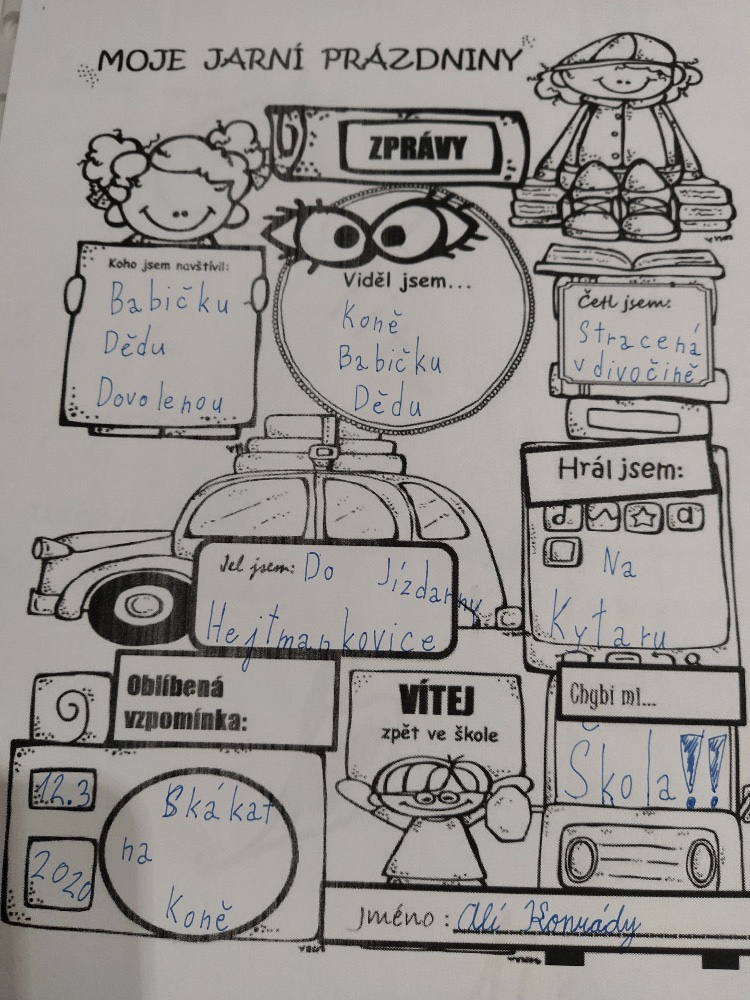 MOJE JARNÍ PRÁZDNINY
ZPRÁVY
Koho jsem navštívil:
Babičku
Dědu
Dovolenou
Viděl jsem...
Koně
Babičku
Dědu
Četl jsem:
Stracená
v divočině
Hrál jsem:
Na
Kytaru
Jel jsem: Do Jízdárny
Hejtmankovice
Oblíbená
vzpomínka:
12.3
2020
Skákat
na
Koně
VÍTEJ
zpět ve škole
Chybí mi...
Škola!!
Jméno: Alí Konrády